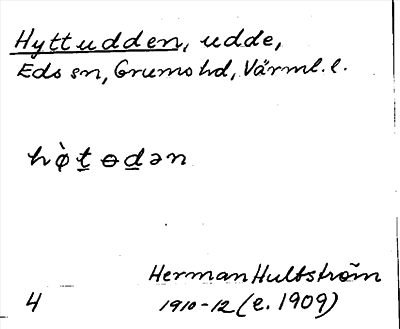 Hyttudden, udde,
Eds sn, Grums hd, Värml. l.
hø̀t̲ɵd̲ən
Herman Hultström
4 1910-12 (e. 1909)